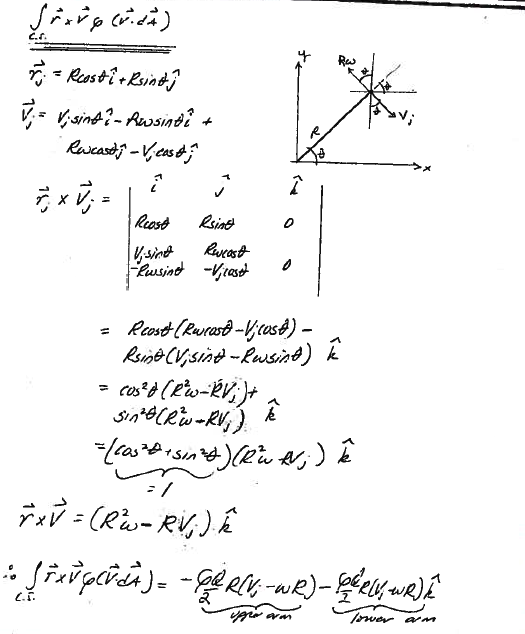 ∫ r⃗ x V⃗ φ (V⃗·dA⃗)
C.S.
r⃗j = Rcosθî + Rsinθĵ
V⃗j = Vjsinθî - Rωsinθî +
Rωcosθĵ - Vjcosθĵ
y
Rω
θ
θ
θ
Vj
R
θ
x
r⃗j x V⃗j = | î ĵ k̂
Rcosθ Rsinθ 0
Vjsinθ Rωcosθ
-Rωsinθ -Vjcosθ 0 |
= Rcosθ(Rωcosθ - Vjcosθ) -
Rsinθ(Vjsinθ - Rωsinθ) k̂
= cos²θ(R²ω - RVj) +
sin²θ(R²ω - RVj) k̂
= (cos²θ + sin²θ)(R²ω - RVj) k̂
= 1
r⃗ x V⃗ = (R²ω - RVj) k̂
∴ ∫ r⃗ x V⃗ φ(V⃗·dA⃗) = - φQ/2 R(Vj - ωR) - φQ/2 R(Vj - ωR) k̂
C.S. upper arm lower arm